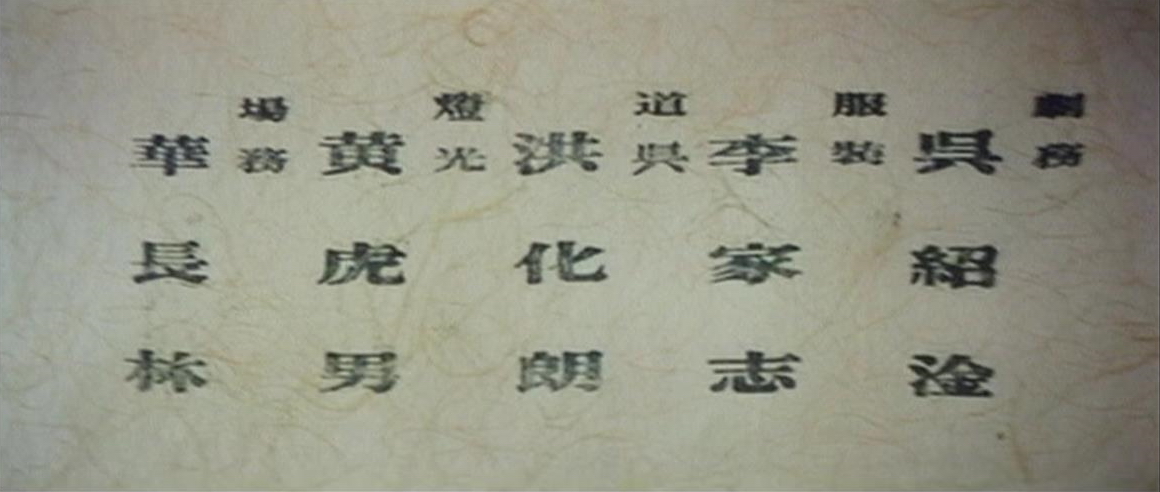 劇務
吳紹淦
服裝
李家志
道具
洪化朗
燈光
黄虎男
場務
華長林